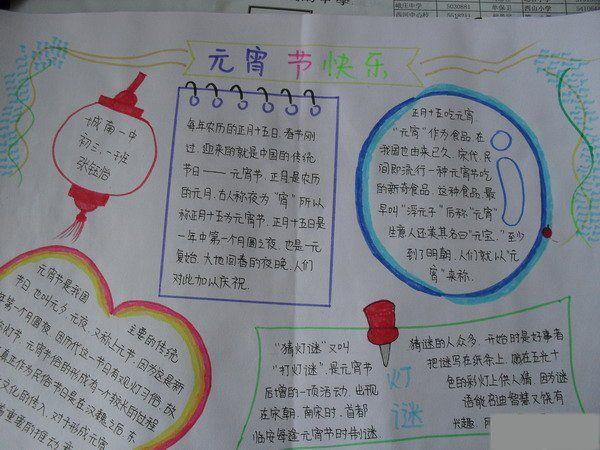 元宵节快乐
城南一中
初三、一班
每年农历的正月十五日,春节刚
过,迎来的就是中国的传统
节日——元宵节,正月是农历
的元月,古人称夜为"宵"所以
称正月十五为元宵节,正月十五日是
一年中第一个月圆之夜,也是一元
复始,大地回春的夜晚,人们
对此加以庆祝.
正月十五吃元宵,
"元宵"作为食品,在
我国也由来已久,宋代,民
间即流行一种元宵节吃
的新奇食品,这种食品,最
早叫"浮元子"后称"元宵"
生意人还美其名曰"元宝,"至少
到了明朝,人们就以"元
宵"来称.
元宵节是我国
主要的传统
节日,也叫元夕,元夜,又称上元节,因为这是新
年第一个月圆夜,因历代这一节日有观灯习俗,故
灯节,元宵节俗的形成有一个较长的过程
真正作为民俗节日是在汉魏之后,东
文化的传入,对于形成元宵
重要的推动
"猜灯谜"又叫
"打灯谜",是元宵节
后增的一项活动,出现
在宋朝,南宋时,首都
临安每逢元宵节时制谜,
灯
谜
猜谜的人众多,开始时是好事者
把谜写在纸条上,贴在五光十
色的彩灯上供人猜,因为谜
语能启迪智慧又饶有
兴趣,